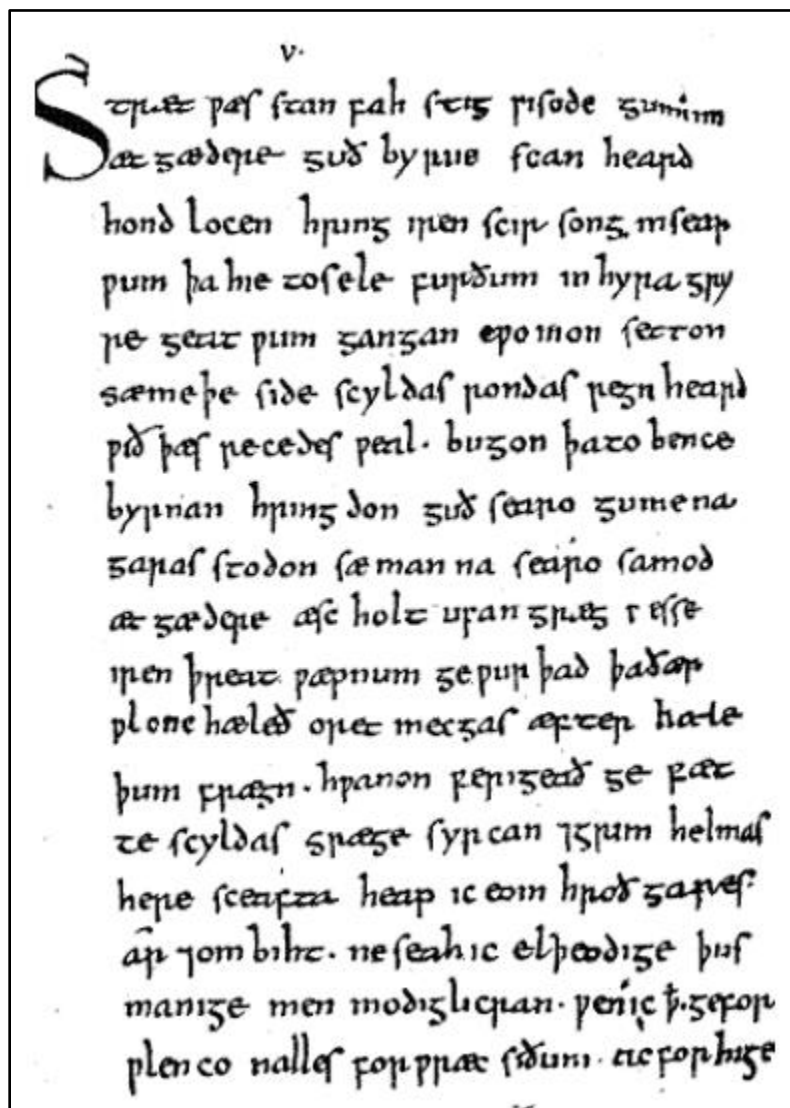 v.
Stræt ƿæs stan fah stig ƿisode gumum
æt gædere guð byrne scan heard
hond locen hring iren scir song in sear
ƿum þa hie to sele furðum in hyra gry
re geat ƿum gangan cƿomon setton
sæmeþe side scyldas rondas regn heard
ƿið þæs recedes ƿeal. bugon þa to bence
byrnan hring don guð searo gumena
garas stodon sæ man na searo samod
æt gædere æsc holt ufan græg ƿæs se
iren þreat ƿæpnum ge ƿur þad þa ðær
ƿlonc hæleð oret mecgas æfter hæle
þum frægn. hƿanon ferigeað ge fæt
te scyldas græge syrcan ⁊grim helmas
here sceafta heap ic eom hroð gares.
ar ⁊om biht. ne seah ic elþeodige þus
manige men modiglicran. ƿen ic ꝥ. ge for
ƿlenco nalles for ƿræc siðum. ac for hige